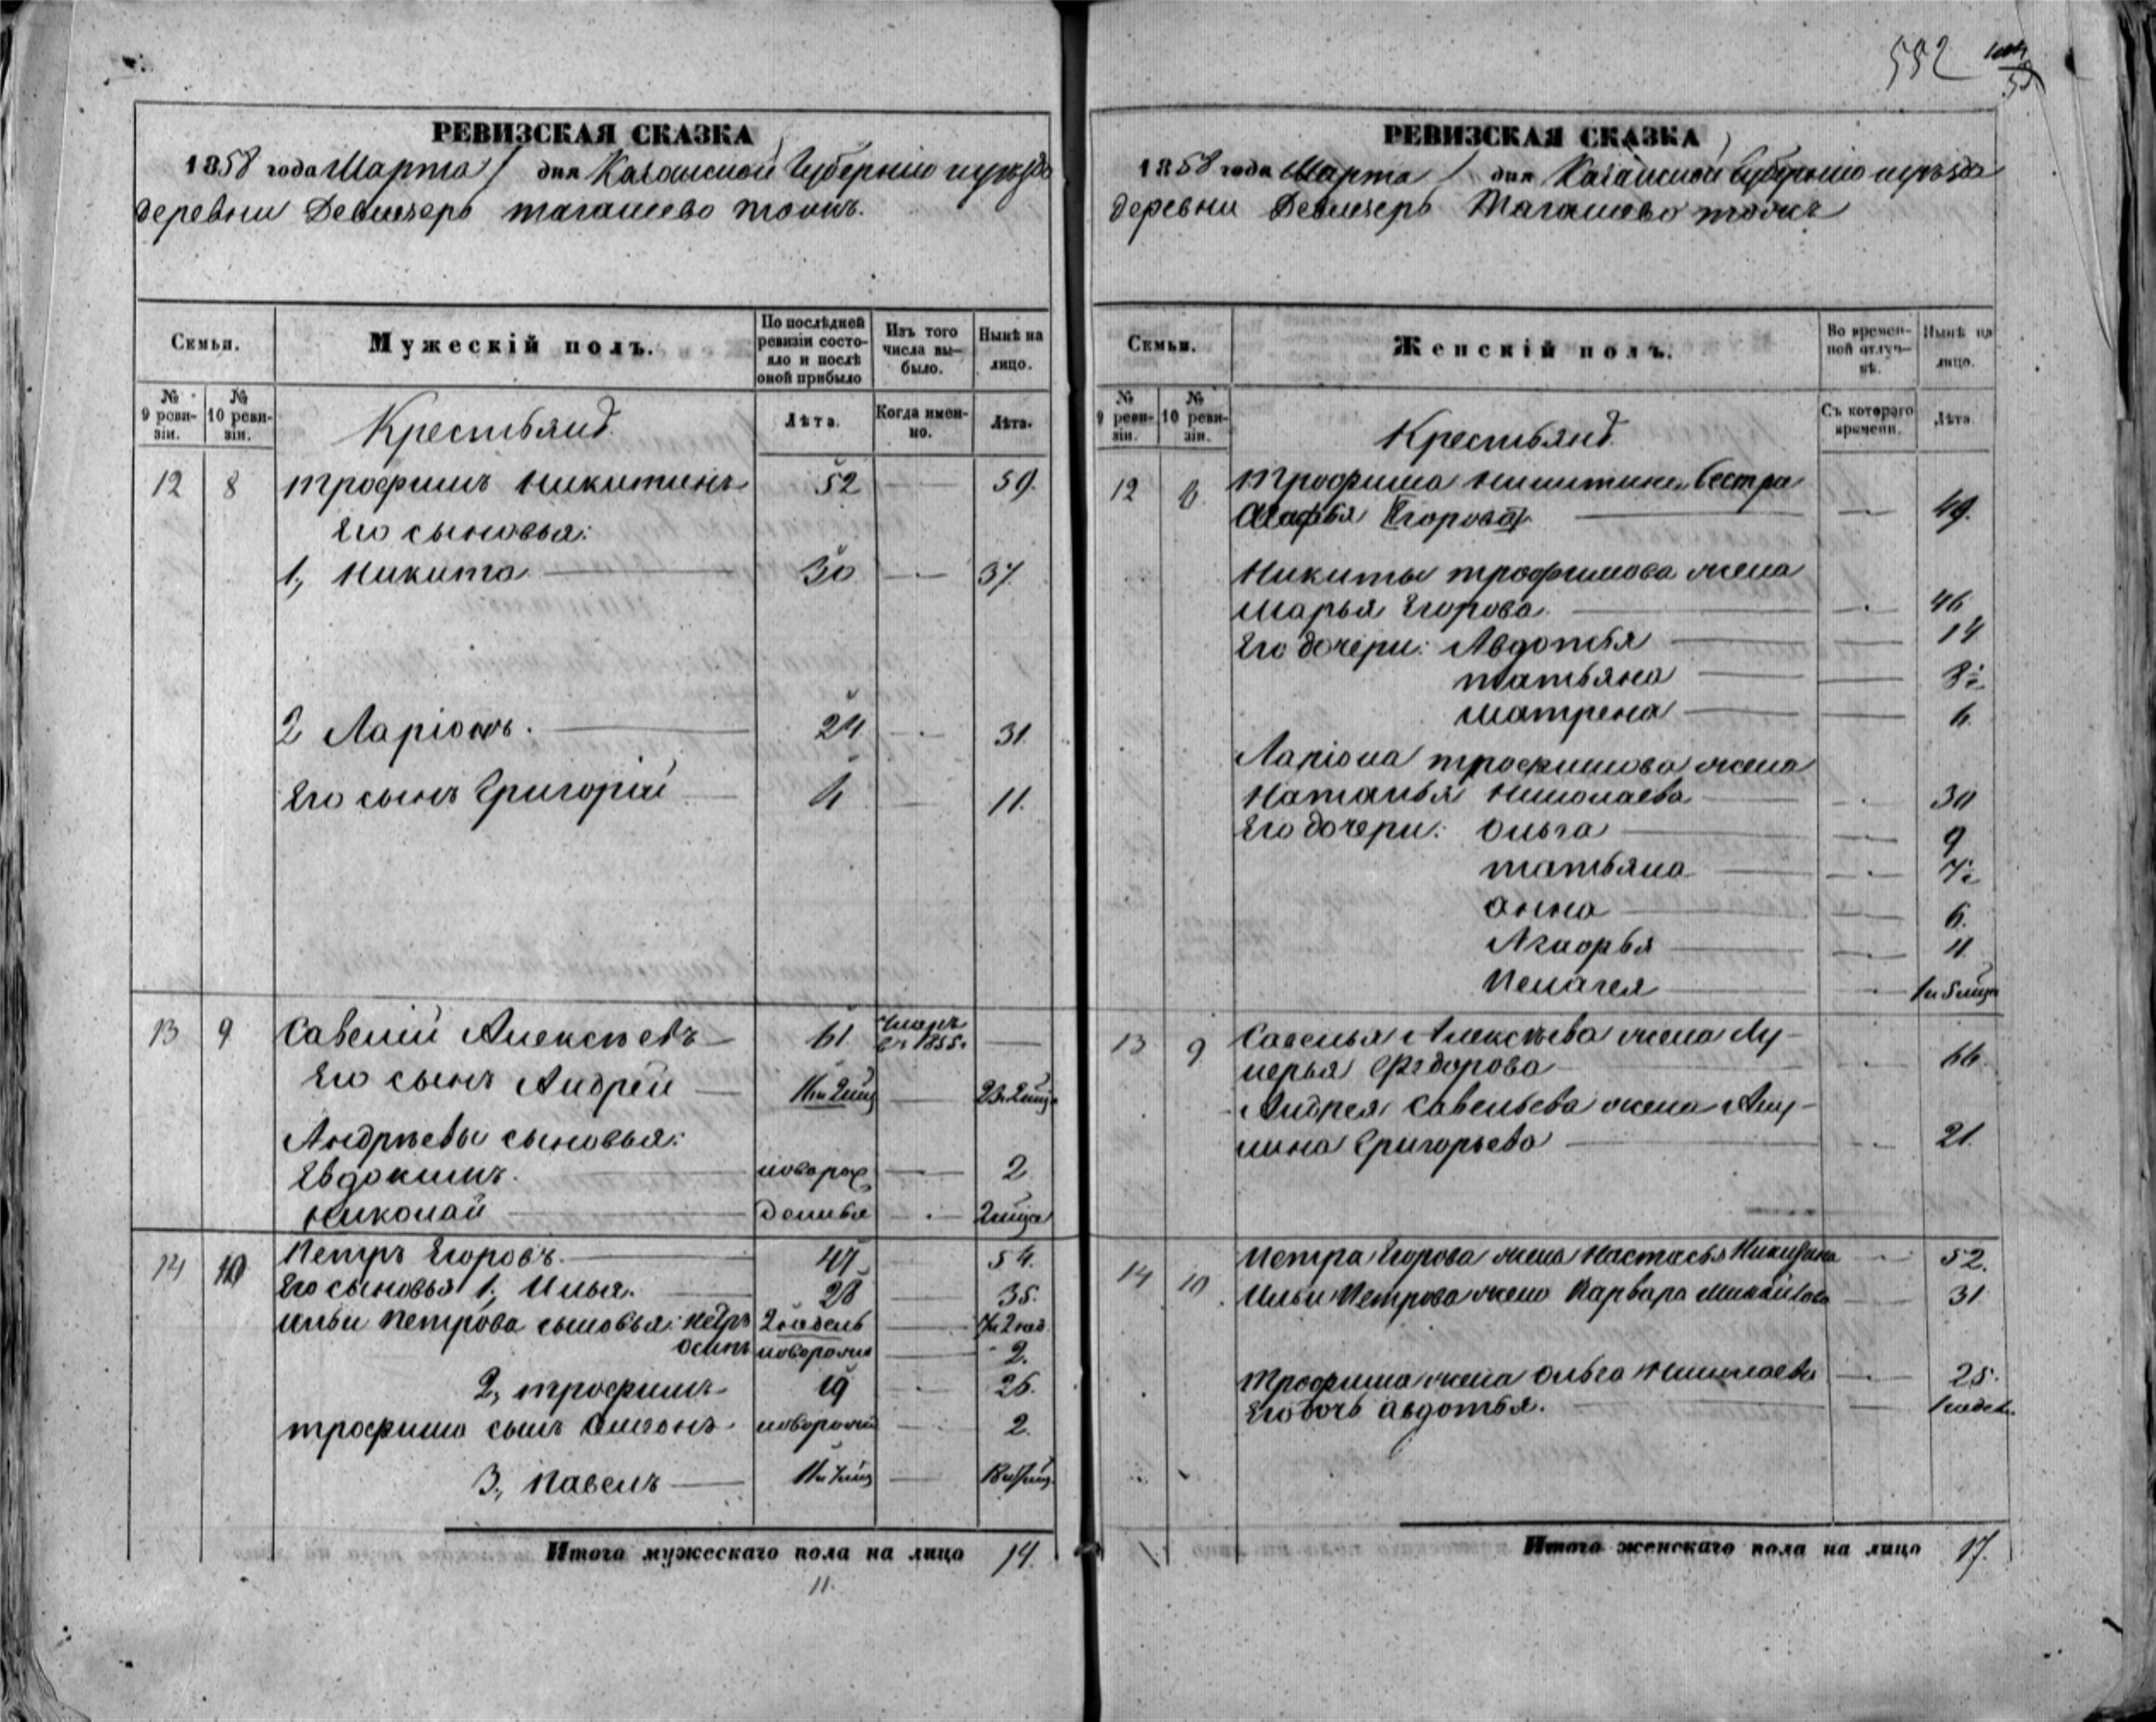 552
РЕВИЗСКАЯ СКАЗКА
1858 года Марта 1 дня Казанской Губерніи и уѣзда
деревни Девличерь тагашево тожъ.
Семьи.
Мужескій полъ.
По послѣдней ревизіи состояло и послѣ оной прибыло
Изъ того числа выбыло.
Нынѣ на лицо.
№ 9 ревизіи.
№ 10 ревизіи.
Крестьянѣ
Лѣта.
Когда именно.
Лѣта.
12 8 Трофимъ Никитинъ 52 59.
Его сыновья:
1, Никита 30 37
2 Ларіонъ. 24 31.
Его сынъ Григорій 4 11.
13 9 Савелій Алексѣевъ 61 умеръ въ 1855.
Его сынъ Андрей 16 и 2 мѣц 23 и 2 мѣц.
Андрѣевы сыновья:
Евдокимъ. новорож 2
Николай денныя 2 мѣца
14 10 Петръ Егоровъ. 47 54.
Его сыновья 1, Илья. 28 35.
Ильи Петрова сыновья: Петръ 2 недель 7 и 2 нед
Осипъ новорож 2.
2, трофимъ 19 26.
трофима сынъ новорож 2.
3, Павелъ 11 и 7 мѣц 18 и 7 мѣц.
Итого мужескаго пола на лицо 14.
11.
РЕВИЗСКАЯ СКАЗКА
1858 года Марта 1 дня Казанской Губерніи и уѣзда
деревни Девличерь Тагашево тожъ
Семьи.
Женскій полъ.
Во временной отлучкѣ.
Нынѣ на лицо.
№ 9 ревизіи.
№ 10 ревизіи.
Крестьянѣ
Съ котораго времени.
Лѣта.
12 8 Трофима Никитина Сестра
Агафья Егорова 49.
Никиты трофимова жена
Марья Егорова 46
Его дочери: Авдотья 14
татьяна 8
матрена 6.
Ларіона трофимова жена
Наталья Николаева 30
Его дочери: Ольга 9
татьяна 7
Анна 6.
Агафья 4
Пелагея 1 и 5 мѣца
13 9 Савелья Алексѣева жена Лу-
керья Федорова 66.
Андрея Савельева жена Аку-
лина Григорьева 21.
14 10 Петра Егорова жена Настасья Никифорова 52.
Ильи Петрова жена Варвара Михайлова 31
Трофима жена Ольга Николаева 25.
Его дочь Авдотья. 1 недел.
Итого женскаго пола на лицо 17.